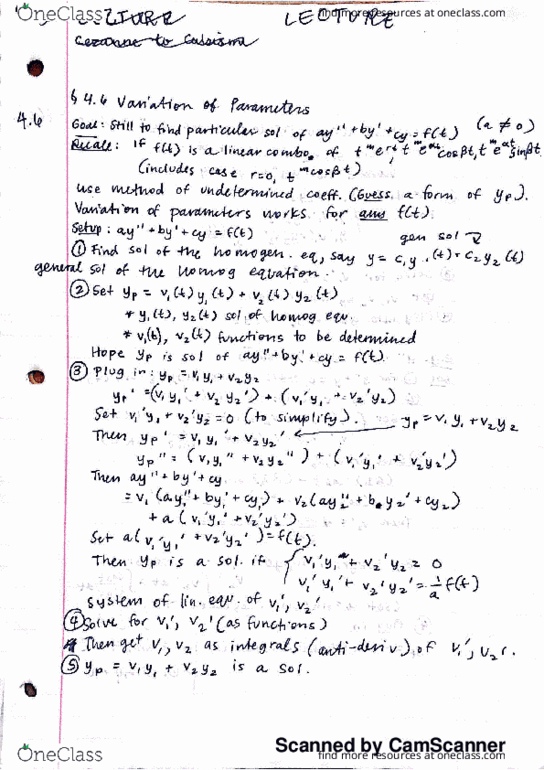 OneClass
LECTURE
find more resources at oneclass.com
to
§ 4.6 Variation of Parameters
4.6
Goal: Still to find particular sol of ay'' + by' + cy = f(t) (a ≠ 0)
Recale: If f(t) is a linear combo. of t^m e^rt, t^m e^αt cosβt, t^m e^αt sinβt
(includes case r=0, t^m cosβt)
use method of undetermined coeff. (Guess a form of yp).
Variation of parameters works for any f(t).
Setup: ay'' + by' + cy = f(t)
gen sol
① Find sol of the homogen. eq, say y = c₁y₁(t) + c₂y₂(t)
general sol of the homog equation.
② Set yp = v₁(t) y₁(t) + v₂(t) y₂(t)
* y₁(t), y₂(t) sol of homog equ.
* v₁(t), v₂(t) functions to be determined
Hope yp is sol of ay'' + by' + cy = f(t).
③ Plug in: yp = v₁y₁ + v₂y₂
yp' = (v₁y₁' + v₂y₂') + (v₁'y₁ + v₂'y₂)
Set v₁'y₁ + v₂'y₂ = 0 (to simplify). yp = v₁y₁ + v₂y₂
Then yp' = v₁y₁' + v₂y₂'
yp'' = (v₁y₁'' + v₂y₂'') + (v₁'y₁' + v₂'y₂')
Then ay'' + by' + cy
= v₁(ay₁'' + by₁' + cy₁) + v₂(ay₂'' + by₂' + cy₂)
+ a(v₁'y₁' + v₂'y₂')
Set a(v₁'y₁' + v₂'y₂') = f(t).
Then yp is a sol. if { v₁'y₁ + v₂'y₂ = 0
v₁'y₁' + v₂'y₂' = 1/a f(t)
system of lin. equ. of v₁', v₂'
④ Solve for v₁', v₂' (as functions)
Then get v₁, v₂ as integrals (anti-deriv.) of v₁', v₂'.
⑤ yp = v₁y₁ + v₂y₂ is a sol.
Scanned by CamScanner
OneClass
find more resources at oneclass.com